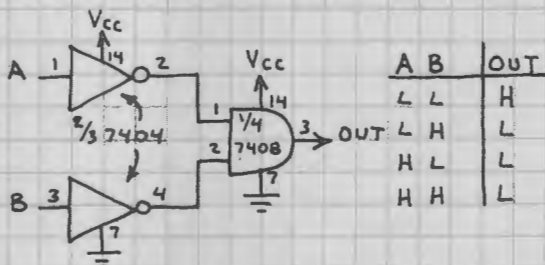 Vcc
14
A 1 2
2/3 7404
B 3 4
7
Vcc
14
1
1/4
7408
2
3 OUT
7
A B OUT
L L H
L H L
H L L
H H L